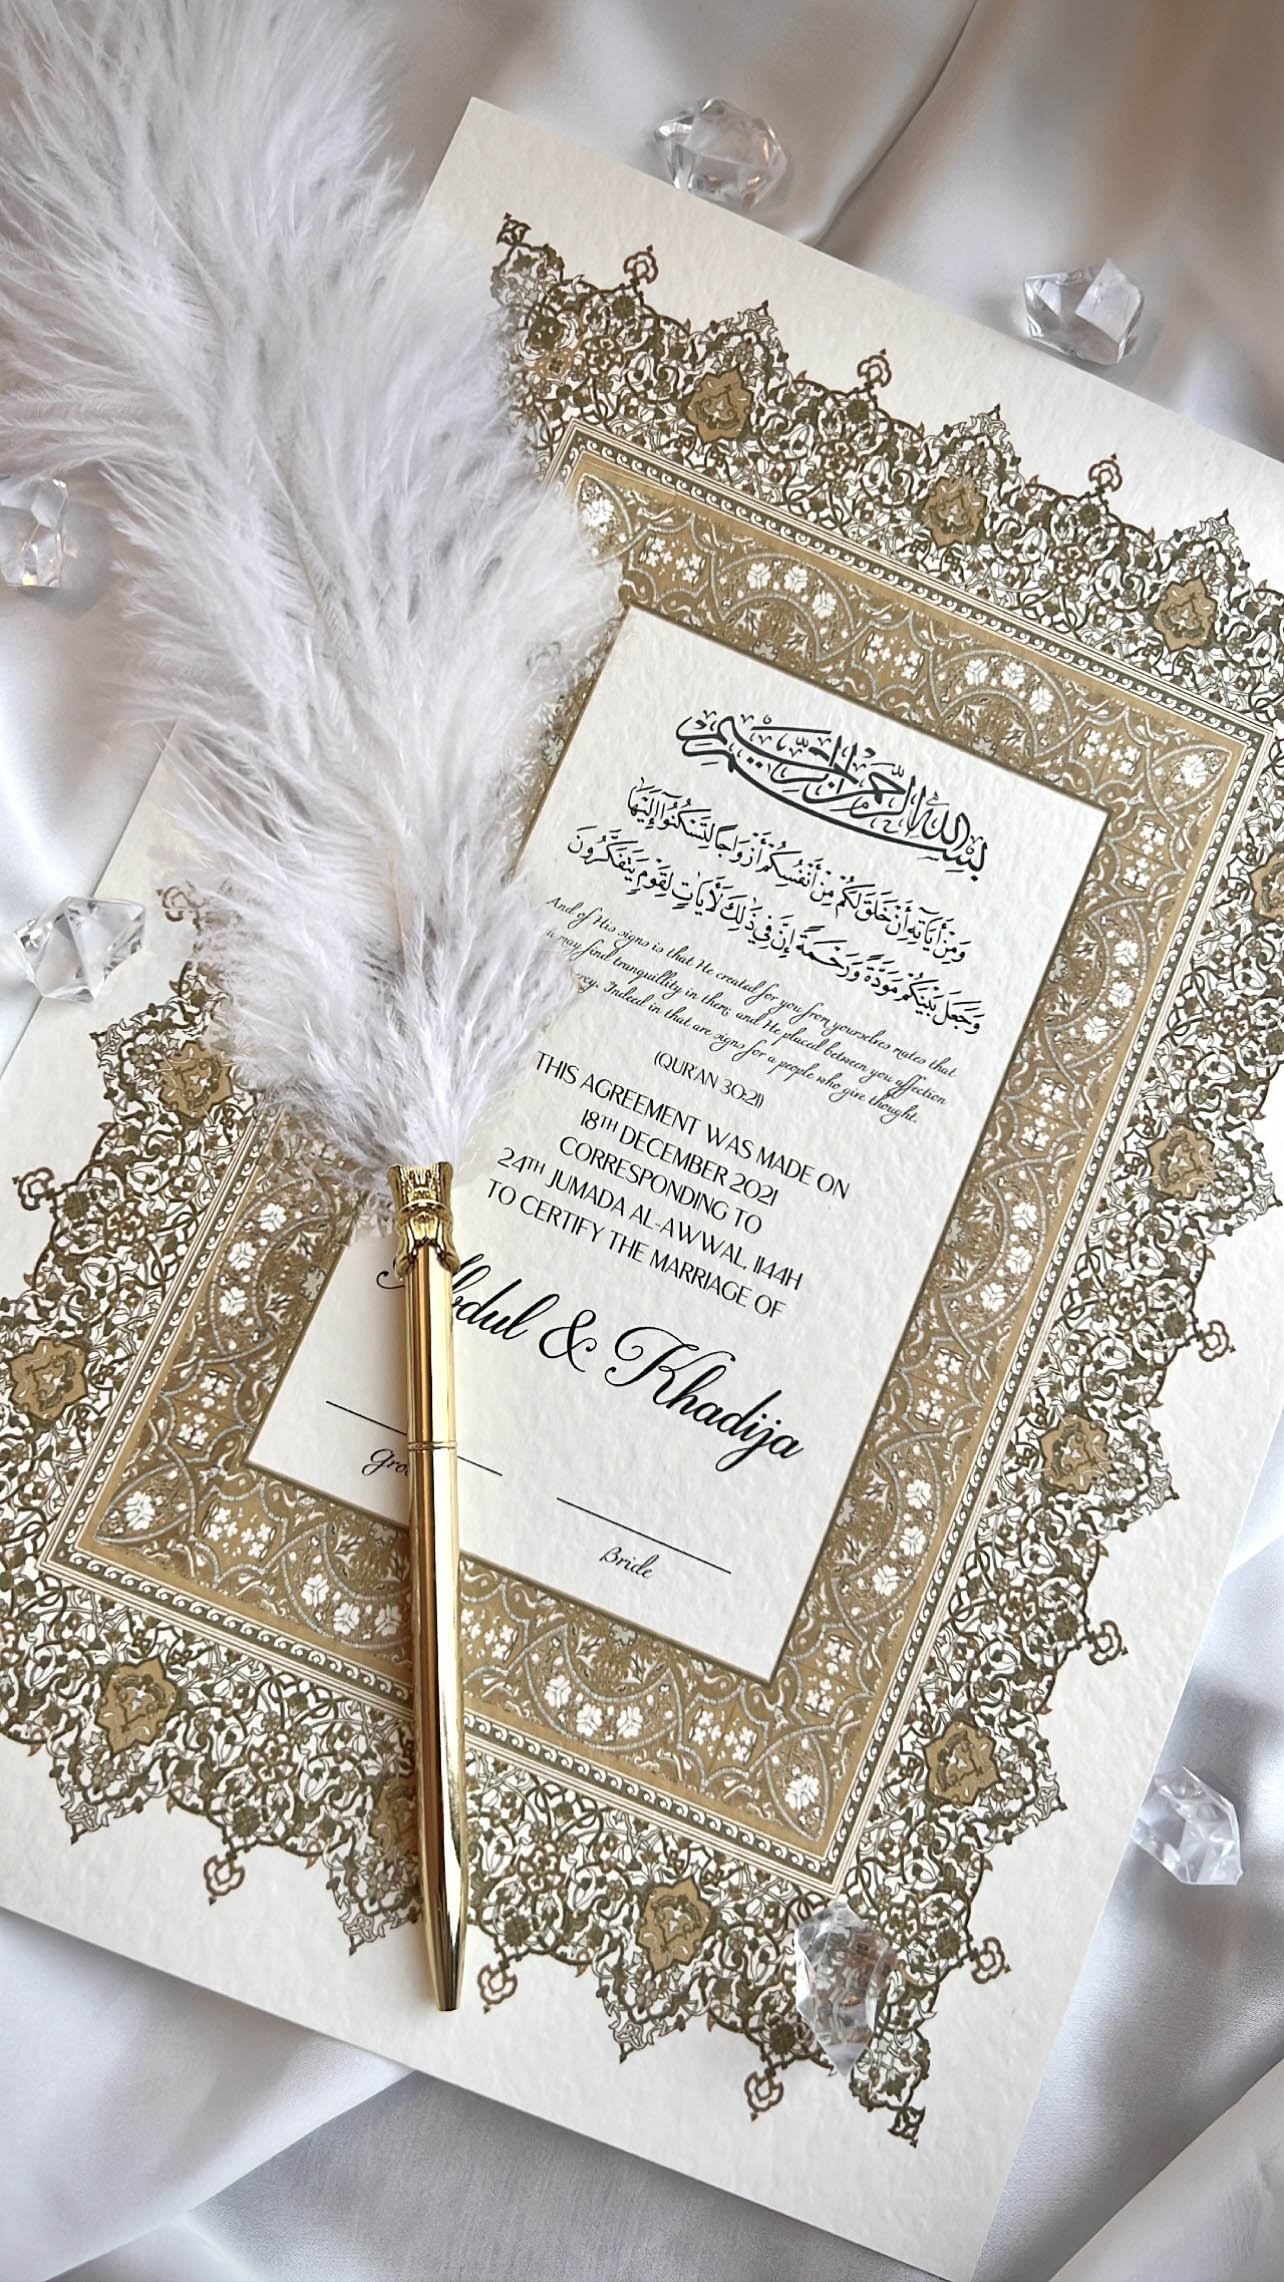 بسم الله الرحمن الرحيم
وَمِنْ أَيَاتِهِ أَنْ خَلَقَ لَكُمْ مِنْ أَنْفُسِكُمْ أَزْوَاجًا لِتَسْكُنُوا إِلَيْهَا
وَجَعَلَ بَيْنَكُمْ مَوَدَّةً وَرَحْمَةً إِنَّ فِي ذَلِكَ لَأَيَاتٍ لِقَوْمٍ يَتَفَكَّرُونَ
And of His signs is that He created for you from yourselves mates that
may find tranquillity in them, and He placed between you affection
Indeed in that are signs for a people who give thought.
(QUR'AN 30:21)
THIS AGREEMENT WAS MADE ON
18TH DECEMBER 2021
CORRESPONDING TO
24TH JUMADA AL-AWWAL, 1144H
TO CERTIFY THE MARRIAGE OF
Abdul & Khadija
Bride